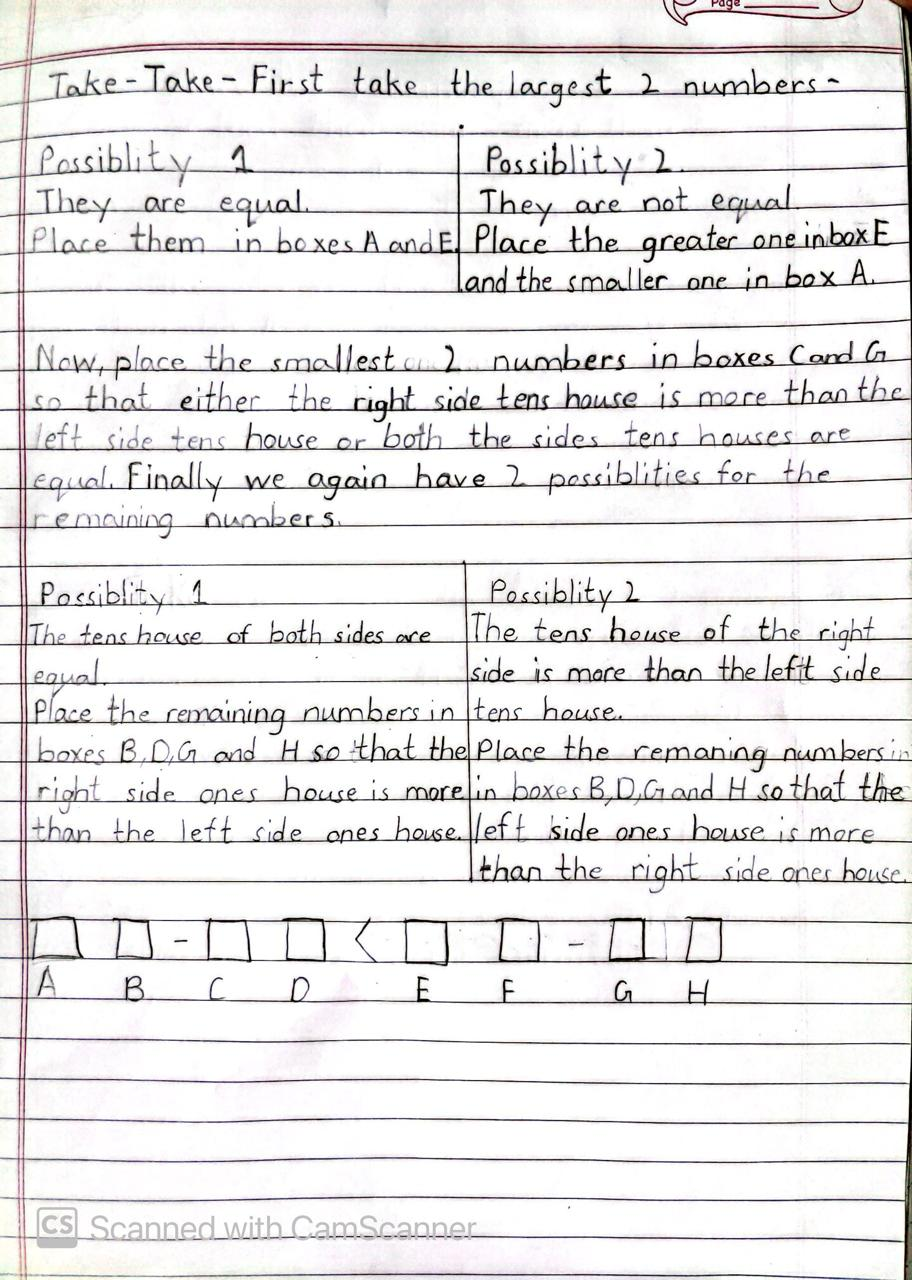 Page
Take-Take- First take the largest 2 numbers-
Possiblity 1
They are equal.
Place them in boxes A and E.
Possiblity 2.
They are not equal
Place the greater one in box E
and the smaller one in box A.
Now, place the smallest 2 numbers in boxes C and G
so that either the right side tens house is more than the
left side tens house or both the sides tens houses are
equal. Finally we again have 2 possiblities for the
remaining numbers.
Possiblity 1
The tens house of both sides are
equal.
Place the remaining numbers in
boxes B, D, G and H so that the
right side ones house is more
than the left side ones house.
Possiblity 2
The tens house of the right
side is more than the left side
tens house.
Place the remaning numbers in
in boxes B, D, G and H so that the
left side ones house is more
than the right side ones house.
- < -
A B C D E F G H
CS Scanned with CamScanner